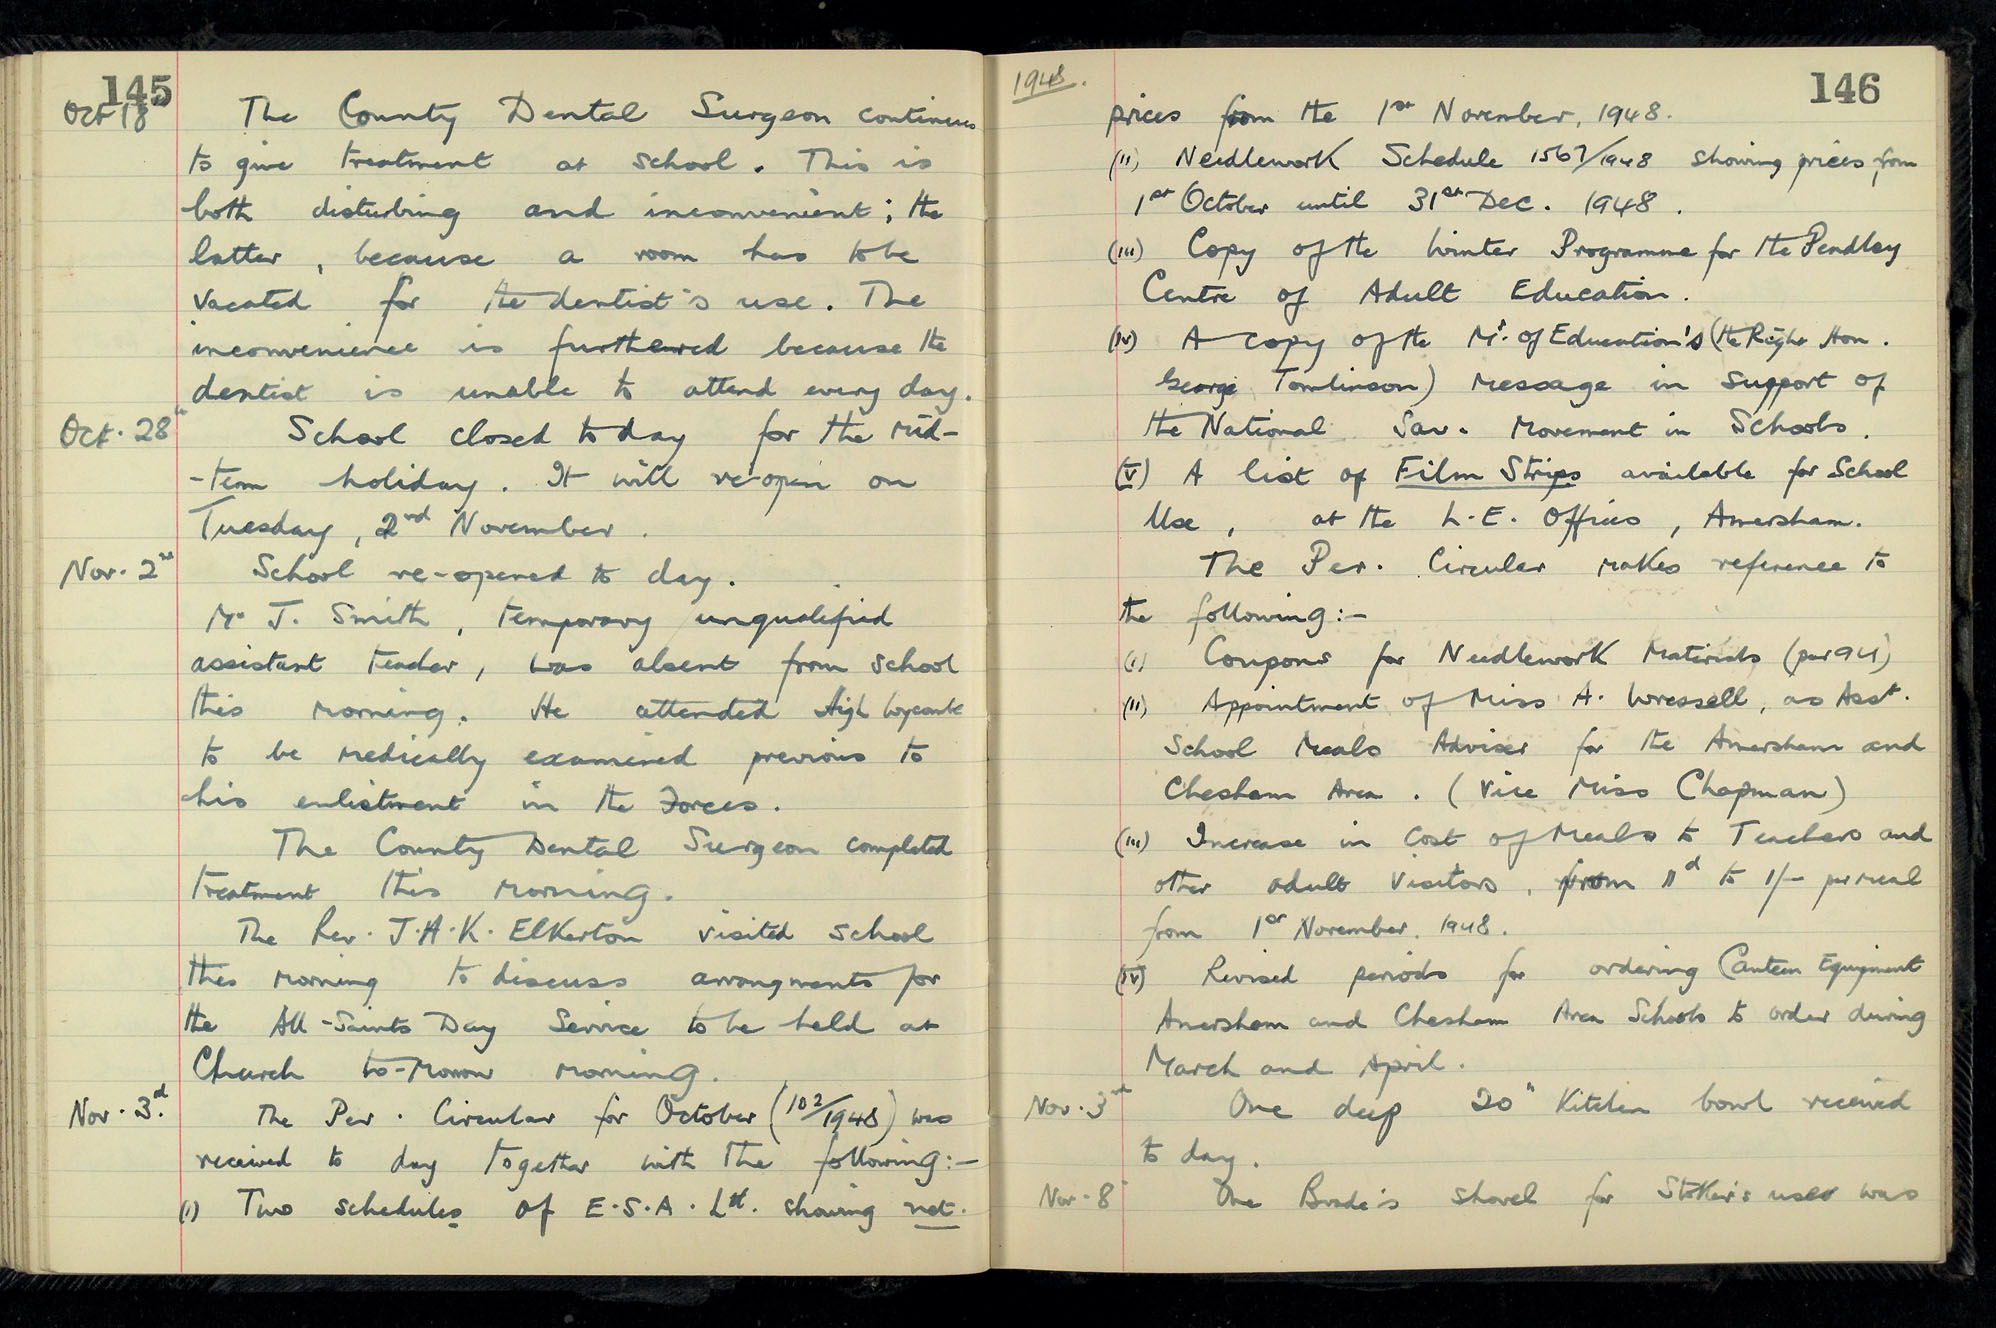 145
Oct 18 The County Dental Surgeon continues
to give treatment at school. This is
both disturbing and inconvenient; the
latter, because a room has to be
vacated for the dentist's use. The
inconvenience is furthered because the
dentist is unable to attend every day.
Oct. 28th School closed to day for the Mid-
-term holiday. It will re-open on
Tuesday, 2nd November.
Nov. 2nd School re-opened to day.
Mr J. Smith, temporary unqualified
assistant teacher, was absent from school
this morning. He attended High Wycombe
to be medically examined previous to
his enlistment in the Forces.
The County Dental Surgeon completed
treatment this morning.
The Rev. J.A.K. Elkerton visited school
this morning to discuss arrangments for
the All-Saints Day Service to be held at
Church to-morrow morning.
Nov. 3d. The Per. Circular for October (102/1948) was
received to day together with the following:-
(i) Two schedules of E.S.A. Ltd. showing net.
1948.
146
prices from the 1st November, 1948.
(ii) Needlework Schedule 1567/1948 showing prices from
1st October until 31st Dec. 1948.
(iii) Copy of the Winter Programme for the Pendley
Centre of Adult Education.
(iv) A copy of the Mr. of Education's (the Right Hon.
George Tomlinson) message in support of
the National Sav. Movement in Schools.
(v) A list of Film Strips available for School
Use, at the L.E. Offices, Amersham.
The Per. Circular makes reference to
the following:-
(i) Coupons for Needlework Materials (par 941)
(ii) Appointment of Miss A. Wressell, as Asst.
School Meals Adviser for the Amersham and
Chesham Area. (Vice Miss Chapman)
(iii) Increase in Cost of Meals to Teachers and
other adult Visitors, from 11d to 1/- per meal
from 1st November. 1948.
(iv) Revised periods for ordering Canteen Equipment
Amersham and Chesham Area Schools to order during
March and April.
Nov. 3rd One deep 20" Kitchen bowl received
to day.
Nov. 8 One Brade's shovel for Stoker's use was